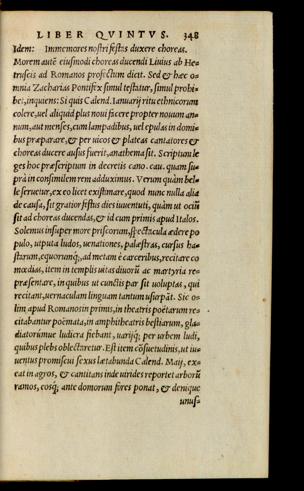 LIBER QVINTVS. 348
Idem: Immemores nostri festas duxere choreas.
Morem autē eiusmodi choreas ducendi Liuius ab He⸗
truscis ad Romanos profectum dicit. Sed & hæc o⸗
mnia Zacharias Pontifex simul testatur, simul prohi⸗
bet, inquiens: Si quis Calend. Ianuarij ritu ethnicorum
colere, uel aliquid plus noui facere propter nouum an⸗
num, aut menses, cum lampadibus, uel epulas in domi⸗
bus præparare, & per uicos & plateas cantatores &
choreas ducere ausus fuerit, anathema sit. Scriptum le
ges hoc præscriptum in decretis cano. cau. quam su⸗
prà in consimilem rem adduximus. Verum quàm bel⸗
le seruetur, ex eo licet existimare, quod nunc nulla alia
de causa, sit gratior festus dies iuuentuti, quàm ut ociū
sit ad choreas ducendas, & id cum primis apud Italos.
Solemus insuper more priscorum, spectacula ædere po
pulo, utputa ludos, uenationes, palæstras, cursus ha⸗
starum, equorumq́;, ad metam è carceribus, recitare co
mœdias, item in templis uitas diuorū ac martyria re⸗
præsentare, in quibus ut cunctis par sit uoluptas, qui
recitant, uernaculam linguam tantum usurpāt. Sic o⸗
lim apud Romanos in primis, in theatris poëtarum re⸗
citabantur poëmata, in amphitheatris bestiarum, gla⸗
diatorúmue ludicra fiebant, uarijq́; per urbem ludi,
quibus plebs oblectaretur. Est item cōsuetudinis, ut iu⸗
uentus promiscui sexus lætabunda Calend. Maij, ex⸗
eat in agros, & cantitans inde uirides reportet arborū
ramos, eosq́; ante domorum fores ponat, & denique
unus⸗